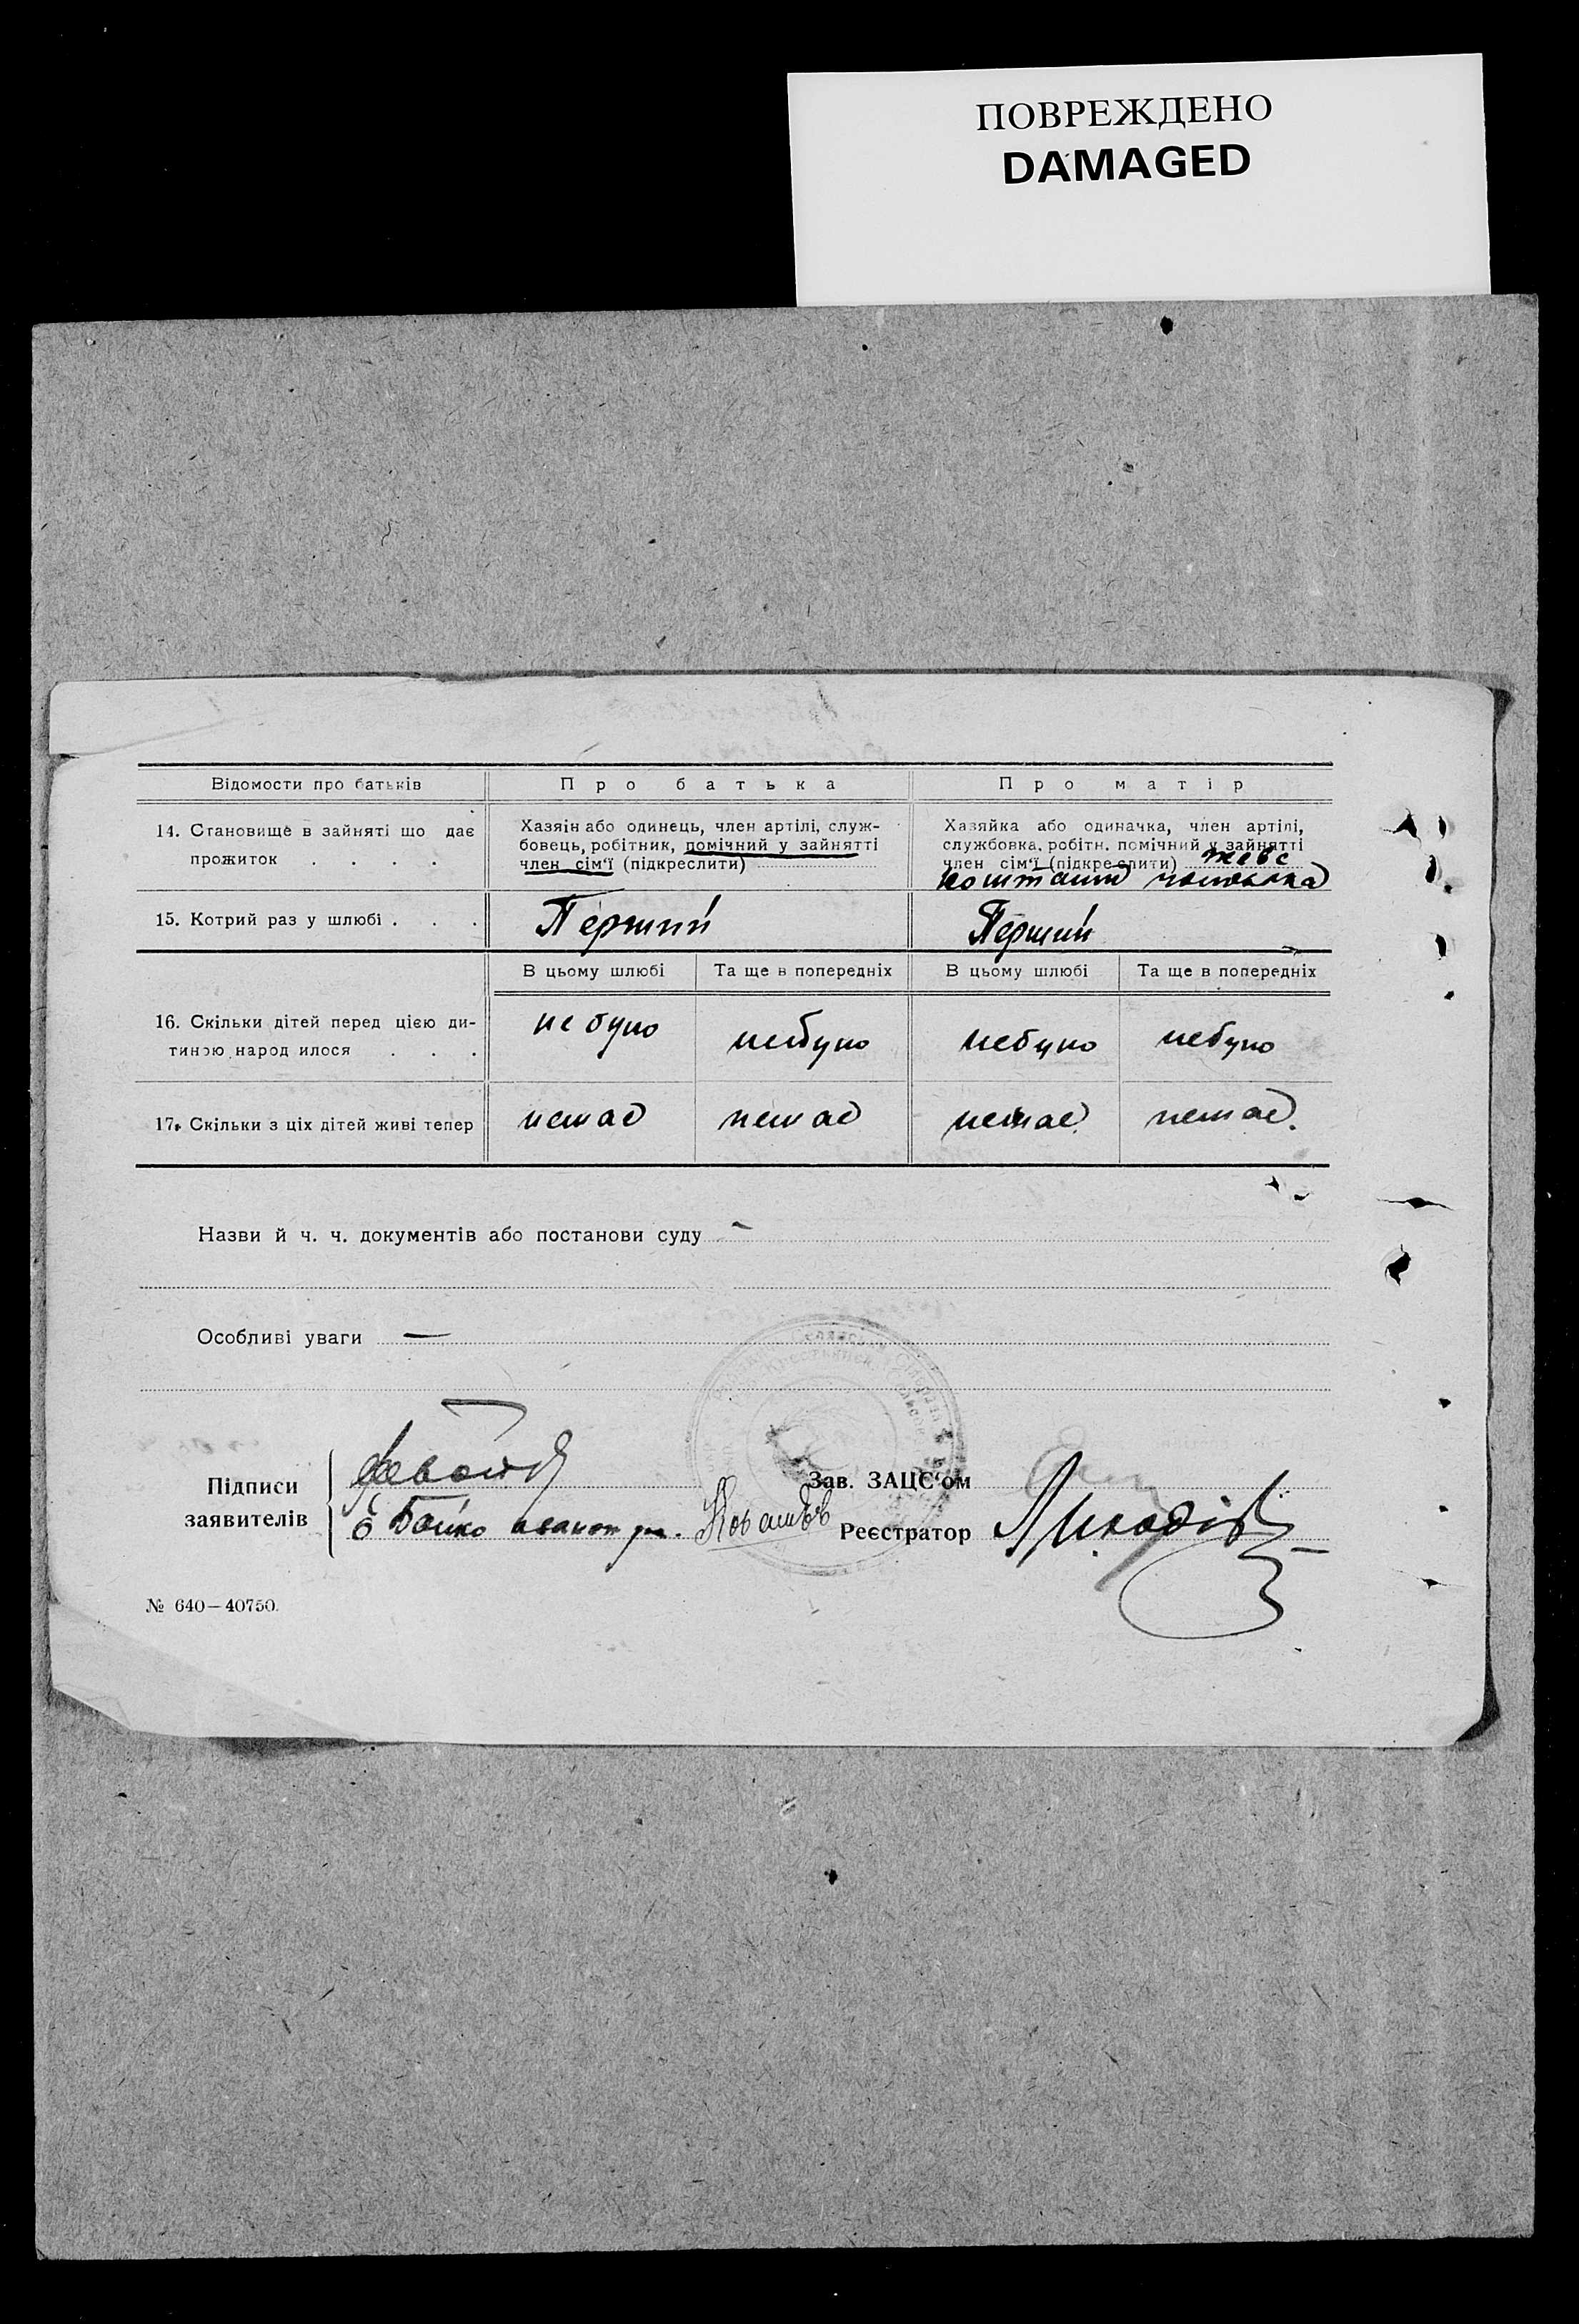 ПОВРЕЖДЕНО
DAMAGED
Відомости про батьків
Про батька
Про матір
14. Становище в зайняті що дає
прожиток . . . .
Хазяін або одинець, член артілі, служ-
бовець, робітник, помічний у зайнятті
член сім'ї (підкреслити)
Хазяйка або одиначка, член артілі,
службовка, робітн. помічний у зайнятті
член сім'ї (підкреслити) живе
коштами чоловіка
15. Котрий раз у шлюбі . . .
Перший
Перший
В цьому шлюбі
Та ще в попередніх
В цьому шлюбі
Та ще в попередніх
16. Скільки дітей перед цією ди-
тиною народилося . . .
не було
небуло
небуло
небуло
17. Скільки з ціх дітей живі тепер
немає
немає
немає
немає.
Назви й ч. ч. документів або постанови суду —
Особливі уваги —
Підписи
заявителів
Бойко
Зав. ЗАЦС'ом
Реєстратор
№ 640—40750.